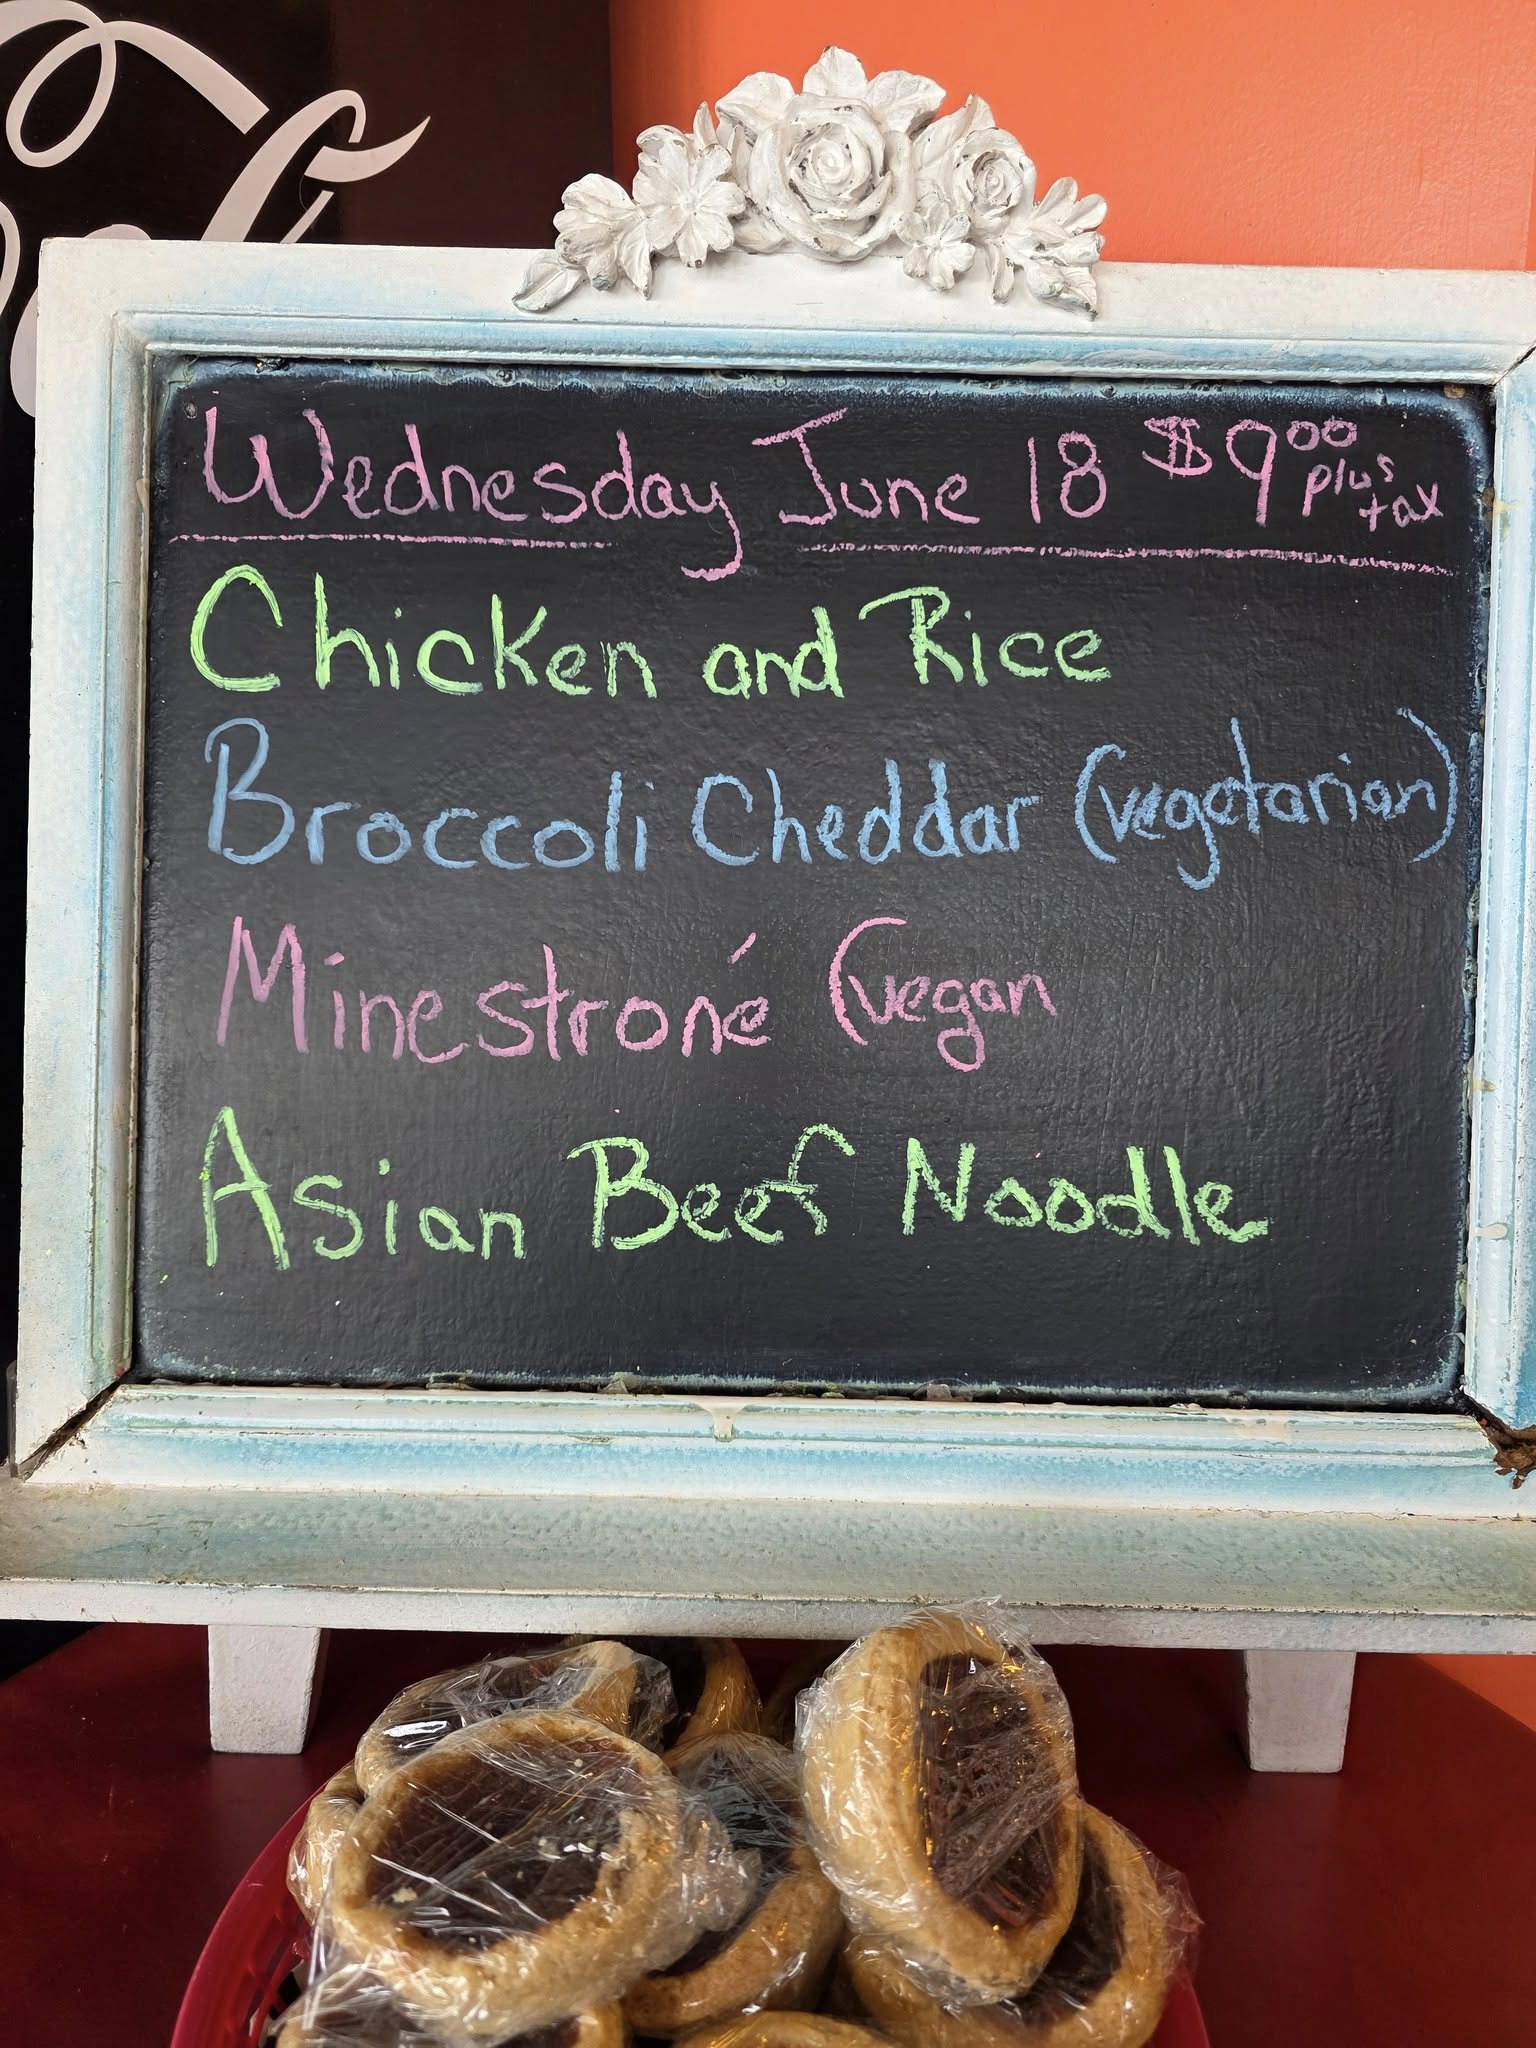 Wednesday June 18 $9.00 plus tax
Chicken and Rice
Broccoli Cheddar (vegetarian)
Minestroné (vegan
Asian Beef Noodle